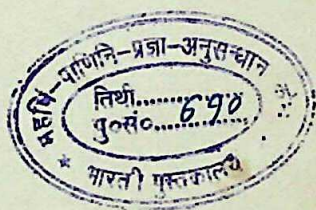 महर्षि-पाणिनि-प्रज्ञा-अनुसन्धान
तिथी...............
पु०सं०....690....
* भारती पुस्तकालय